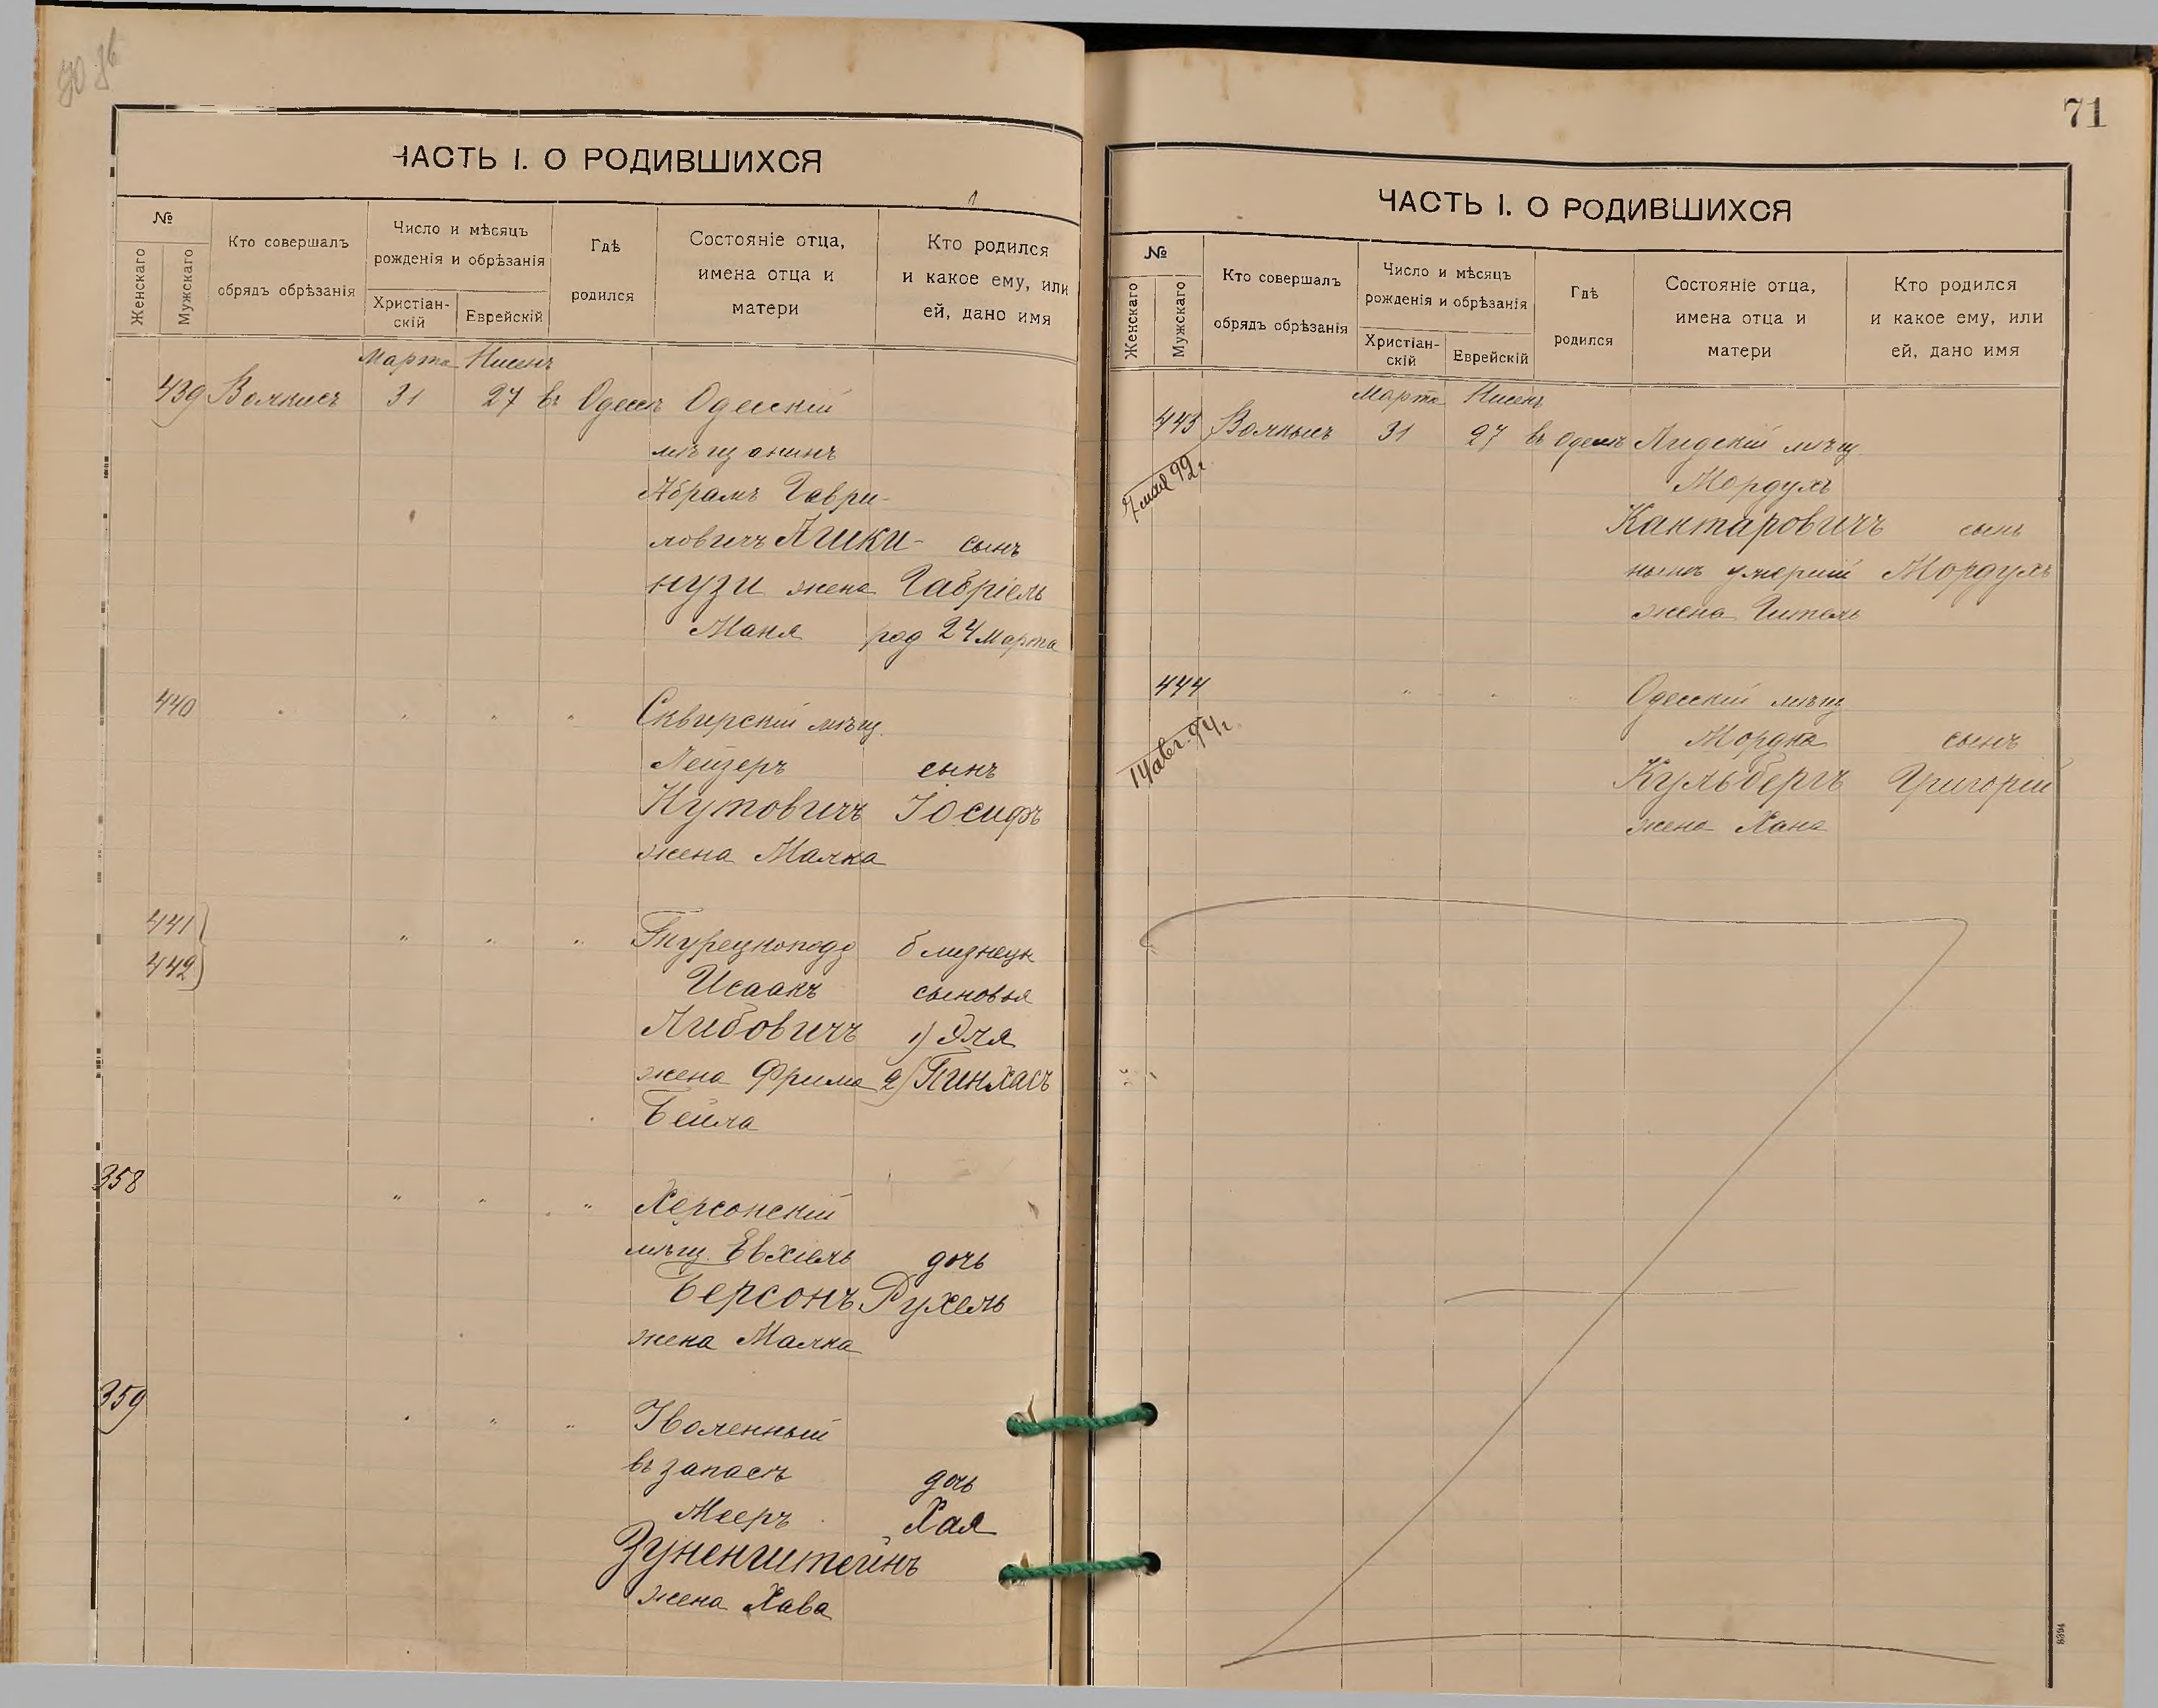 ЧАСТЬ I. О РОДИВШИХСЯ
№
Женскаго
Мужскаго
Кто совершалъ
обрядъ обрѣзанія
Число и мѣсяцъ
рожденія и обрѣзанія
Христіан-
скій
Еврейскій
Гдѣ
родился
Состояніе отца,
имена отца и
матери
Кто родился
и какое ему, или
ей, дано имя
Марта Нисенъ
439 31 27 въ Одессѣ Одесскій
мѣщанинъ
Абрамъ Гаври-
ловичъ Ашки- сынъ
нузи жена Габріель
Маня род 24 Марта
440 " " " Сквирскій мѣщ.
Лейзеръ сынъ
Кутовичъ Іосифъ
жена Малка
441 " " " Турецкопод близнецы
442 Исаакъ сыновья
Либовичъ 1) Эля
жена Фрима 2) Пинхасъ
Бейла
358 " " " Херсонскій
мѣщ. Евхіель дочь
Берсонъ Рухель
жена Малка
359 " " " Уволенный
въ запасъ дочь
Мееръ Хая
Зуненштейнъ
жена Хава
71
ЧАСТЬ I. О РОДИВШИХСЯ
№
Женскаго
Мужскаго
Кто совершалъ
обрядъ обрѣзанія
Число и мѣсяцъ
рожденія и обрѣзанія
Христіан-
скій
Еврейскій
Гдѣ
родился
Состояніе отца,
имена отца и
матери
Кто родился
и какое ему, или
ей, дано имя
Марта Нисенъ
443 31 27 въ Одессѣ Лидскій мѣщ
7 мая 99 г.
Мордухъ
Кантаровичъ сынъ
нынѣ умерший Мордухъ
жена Гитель
444 " " " Одесскій мѣщ
14 авг. 94 г.
Мордка сынъ
Кульбергъ Григорій
жена Хана
8394